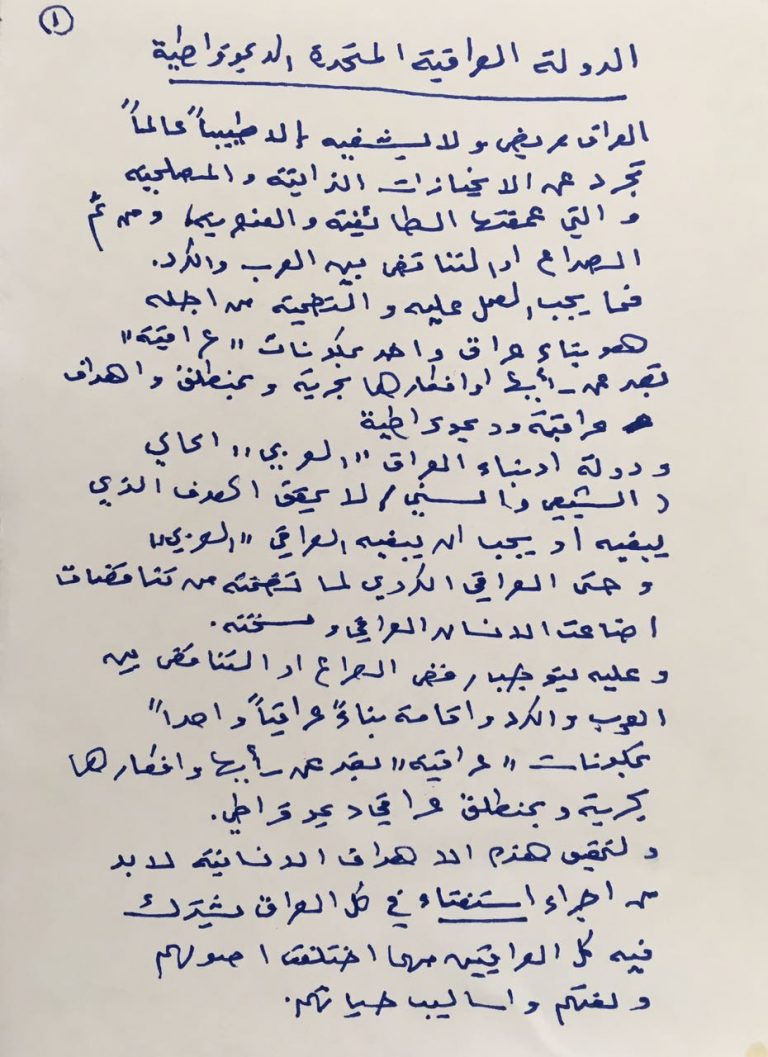 ١
الدولة العراقية المتحدة الديموقراطية
العراق مريض ولا يشفيه إلا طبيباً عالماً
تجرد عن الانحيازات الذاتية والمصلحية
والتي عمقتها الطائفية والعنصرية ومن ثمّ
الصراع او التناقض بين العرب والكرد.
فما يجب العمل عليه والتضحية من اجله
هو بناء عراق واحد بمكونات "عراقية"
تعبر عن رأيها وافكارها بحرية وبمنطلق واهداف
عراقية وديموقراطية
ودولة ابناء العراق "العربي" الحالي
(الشيعي والسني) لا يحقق الهدف الذي
يبغيه او يجب ان يبغيه العراقي "العربي"
وحتى العراقي الكردي لما تضمنته من تناقضات
اضاعت الانسان العراقي و
وعليه يتوجب رفض الصراع او التناقض بين
العرب والكرد واقامة بناءً عراقياً واحداً"
بمكونات "عراقية" تعبر عن رأيها وافكارها
بحرية وبمنطلق عراقي ديموقراطي.
ولتحقيق هذه الاهداف الانسانية لابد
من اجراء استفتاء في كل العراق يشترك
فيه كل العراقيين مهما اختلفت اصولهم
ولغتهم واساليب حياتهم.